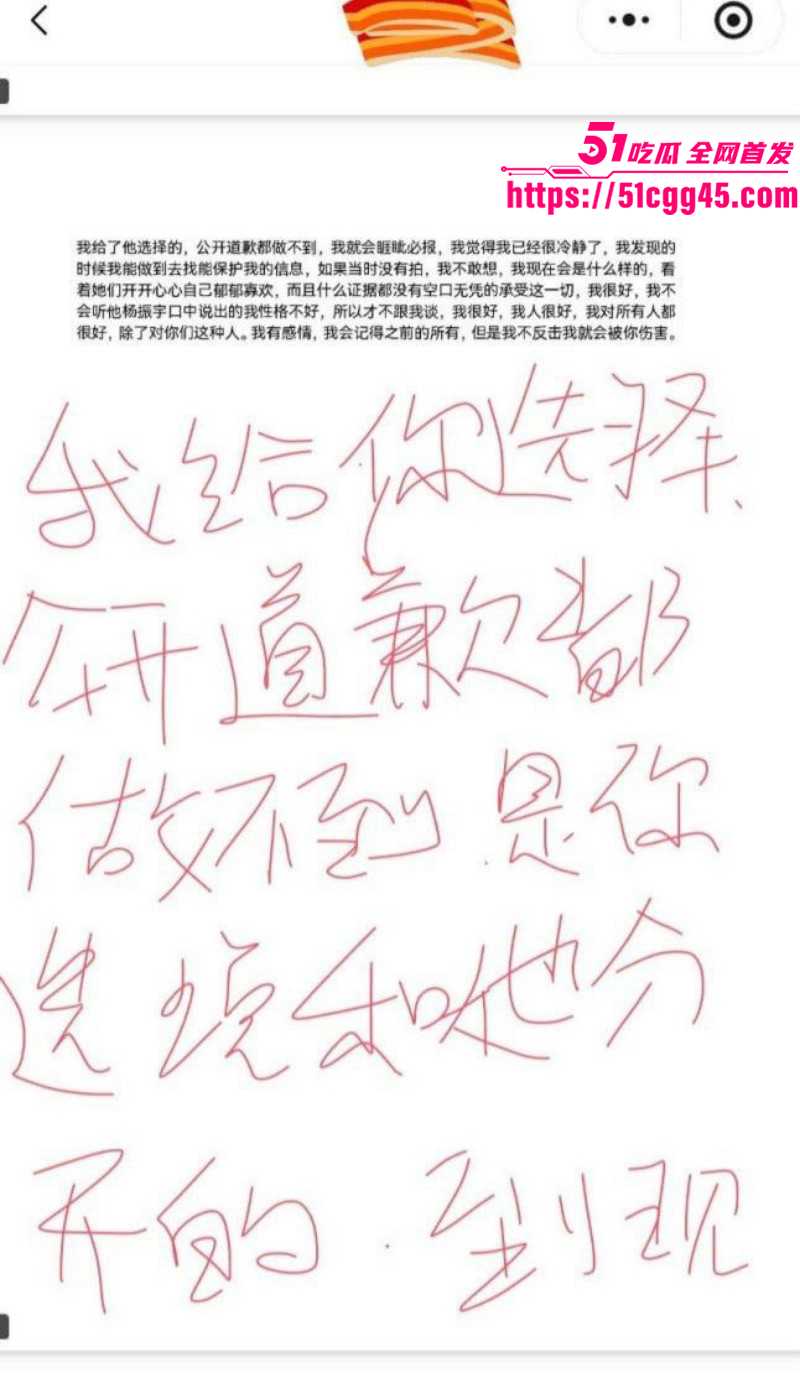 51吃瓜 全网首发
https://51cgg45.com
我给了他选择的，公开道歉都做不到，我就会睚眦必报，我觉得我已经很冷静了，我发现的
时候我能做到去找能保护我的信息，如果当时没有拍，我不敢想，我现在会是什么样的，看
着她们开开心心自己郁郁寡欢，而且什么证据都没有空口无凭的承受这一切，我很好，我不
会听他杨振宇口中说出的我性格不好，所以才不跟我谈，我很好，我人很好，我对所有人都
很好，除了对你们这种人。我有感情，我会记得之前的所有，但是我不反击我就会被你伤害。
我给你选择、
公开道歉都
做不到.是你
选 现和他分
开的.到现